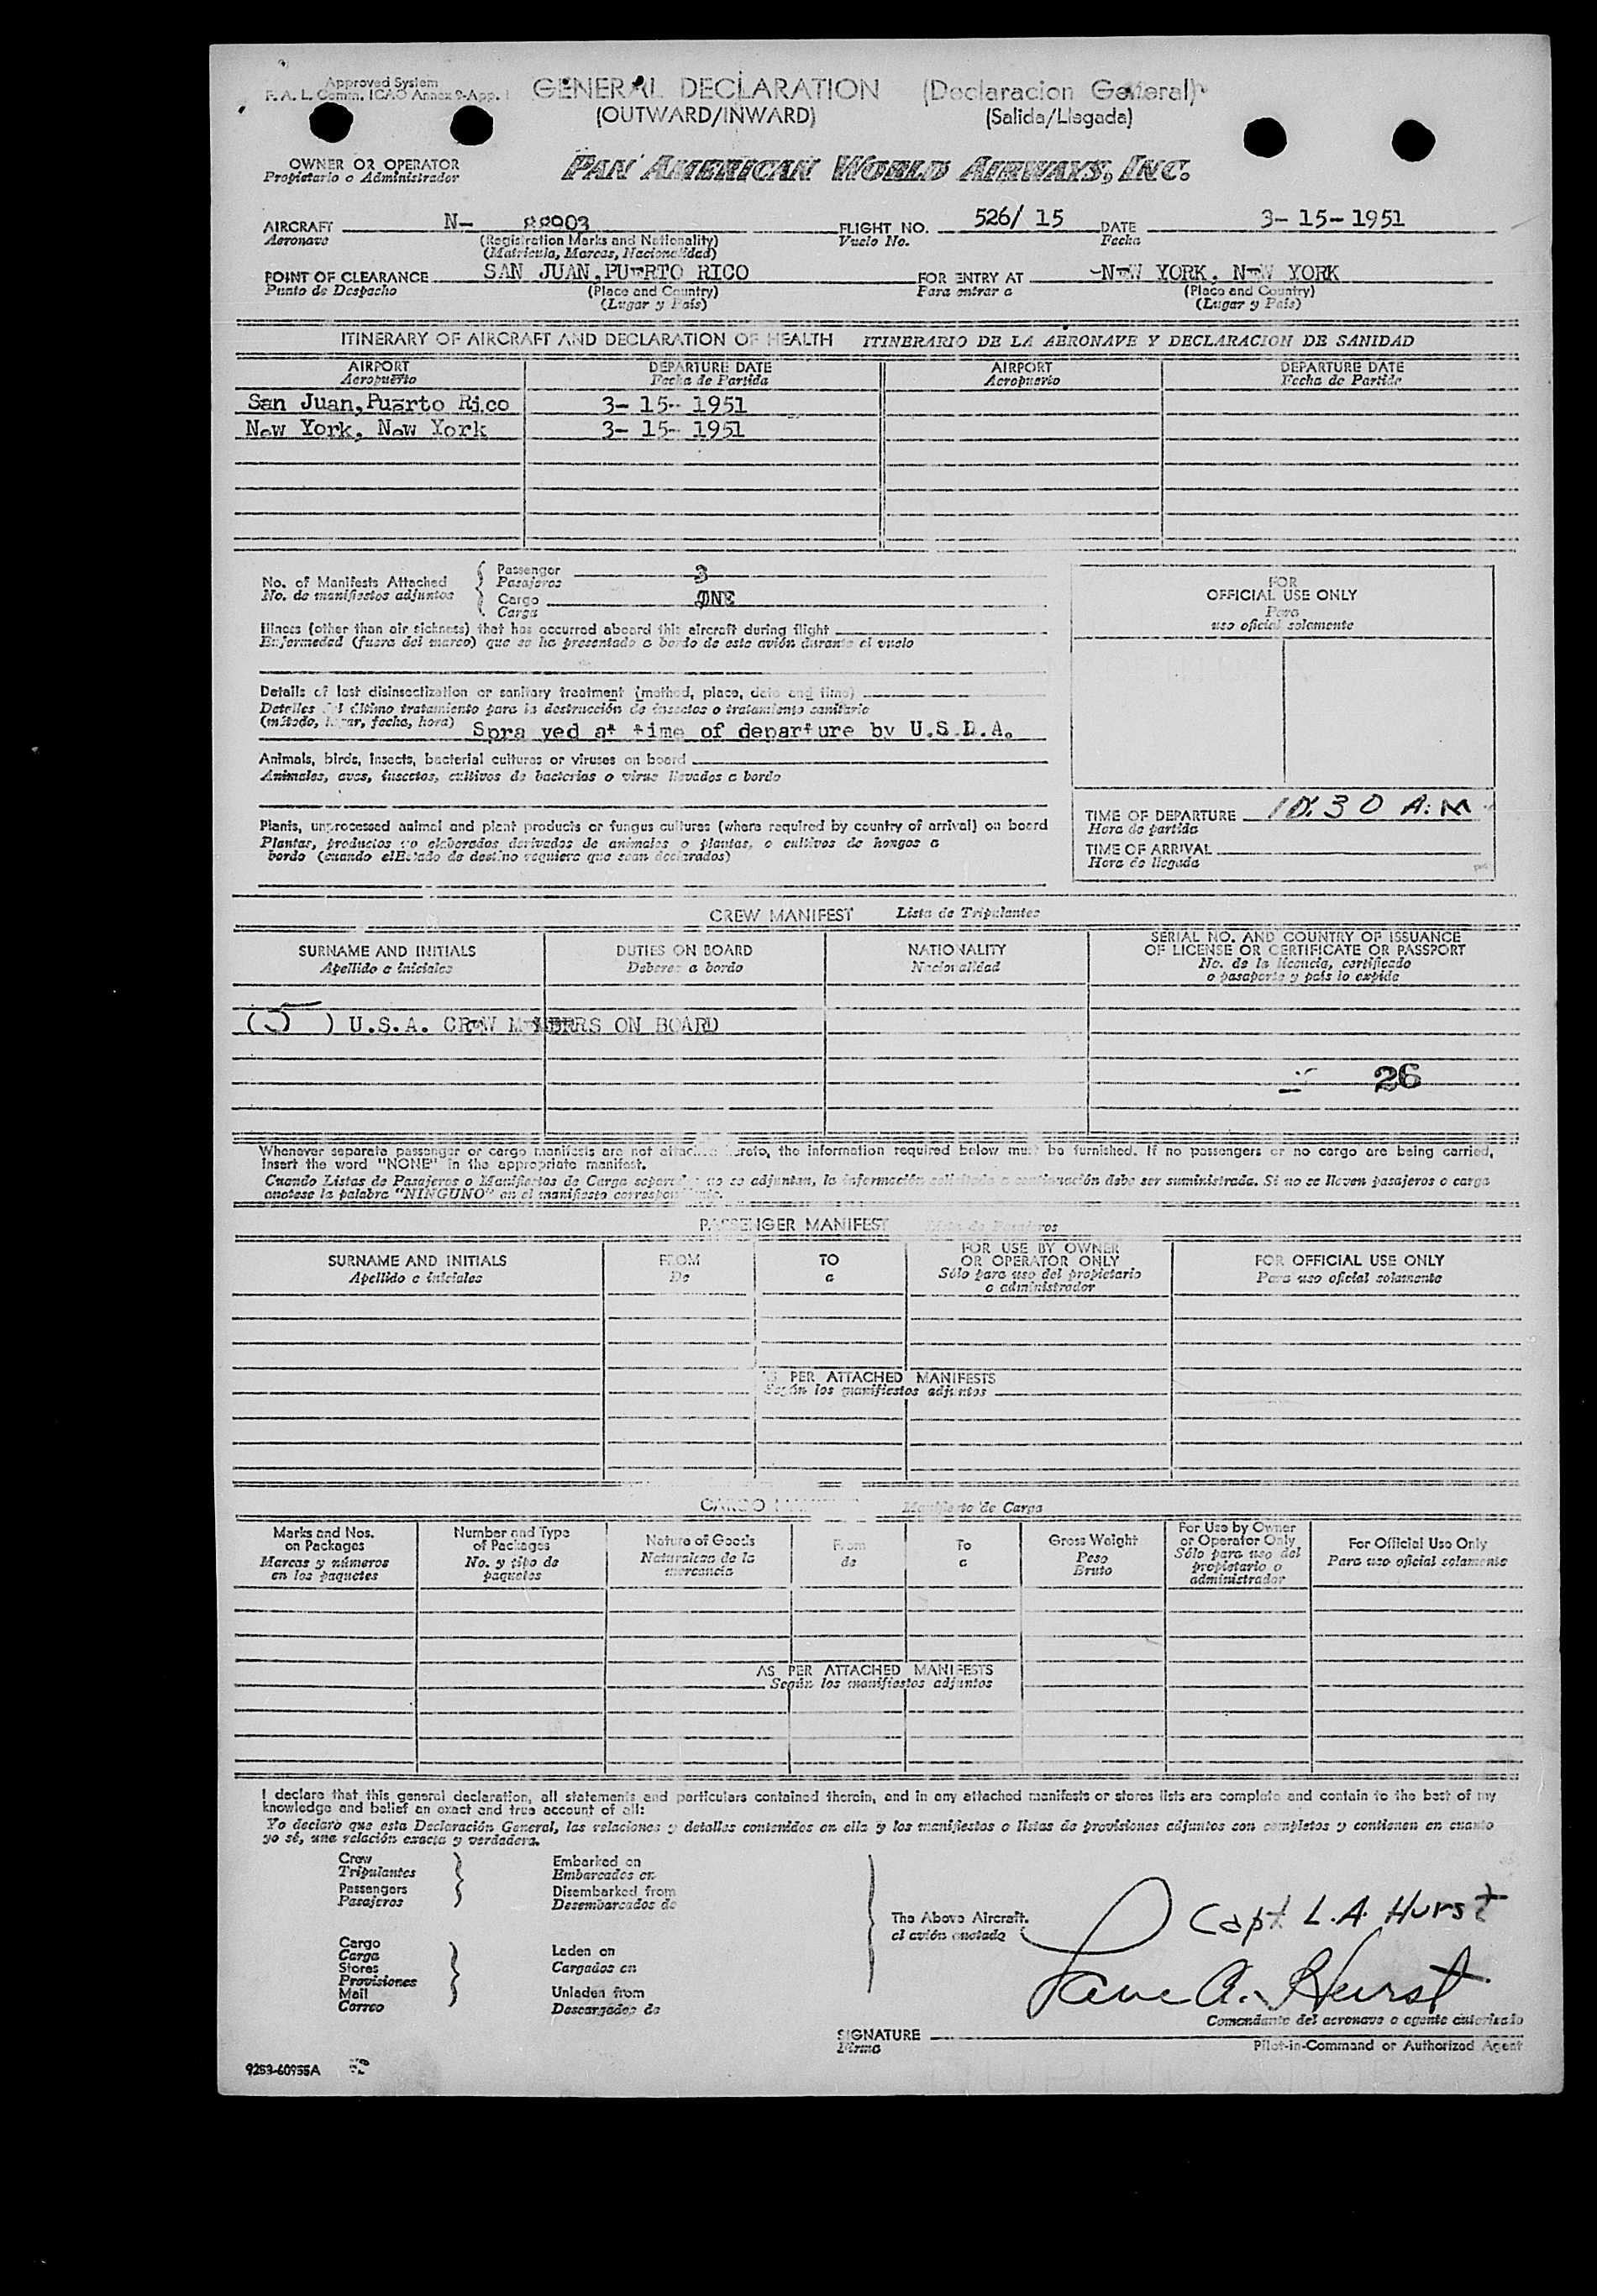 Approved System
F. A. L. Comm. ICAO Annex 9-App. 1
GENERAL DECLARATION (Declaracion General)
(OUTWARD/INWARD) (Salida/Llegada)
OWNER OR OPERATOR
Propietario o Administrador
PAN AMERICAN WORLD AIRWAYS, INC.
AIRCRAFT N- 88903 FLIGHT NO. 526/ 15 DATE 3- 15- 1951
Aeronave (Registration Marks and Nationality) Vuelo No. Fecha
(Matricula, Marcas, Nacionalidad)
POINT OF CLEARANCE SAN JUAN, PUERTO RICO FOR ENTRY AT NEW YORK, NEW YORK
Punto de Despacho (Place and Country) Para entrar a (Place and Country)
(Lugar y País) (Lugar y País)
ITINERARY OF AIRCRAFT AND DECLARATION OF HEALTH ITINERARIO DE LA AERONAVE Y DECLARACION DE SANIDAD
AIRPORT DEPARTURE DATE AIRPORT DEPARTURE DATE
Aeropuerto Fecha de Partida Aeropuerto Fecha de Partida
San Juan, Puerto Rico 3- 15- 1951
New York, New York 3- 15- 1951
No. of Manifests Attached
No. de manifiestos adjuntos
Passenger 3
Pasajeros
Cargo ONE
Carga
Illness (other than air sickness) that has occurred aboard this aircraft during flight
Enfermedad (fuera del mareo) que se ha presentado a bordo de este avión durante el vuelo
Details of last disinsectization or sanitary treatment (method, place, date and time)
Detalles del último tratamiento para la destrucción de insectos o tratamiento sanitario
(método, lugar, fecha, hora) Spra yed at time of departure by U.S.D.A.
Animals, birds, insects, bacterial cultures or viruses on board
Animales, aves, insectos, cultivos de bacterias o virus llevados a bordo
Plants, unprocessed animal and plant products or fungus cultures (where required by country of arrival) on board
Plantas, productos no elaborados derivados de animales o plantas, o cultivos de hongos a
bordo (cuando el Estado de destino requiere que sean declarados)
FOR
OFFICIAL USE ONLY
Para
uso oficial solamente
TIME OF DEPARTURE 10:30 A.M
Hora de partida
TIME OF ARRIVAL
Hora de llegada
CREW MANIFEST Lista de Tripulantes
SURNAME AND INITIALS DUTIES ON BOARD NATIONALITY SERIAL NO. AND COUNTRY OF ISSUANCE
OF LICENSE OR CERTIFICATE OR PASSPORT
Apellido e iniciales Deberes a bordo Nacionalidad No. de la licencia, certificado
o pasaporte y país lo expide
(5) U.S.A. CREW MEMBERS ON BOARD
26
Whenever separate passenger or cargo manifests are not attached hereto, the information required below must be furnished. If no passengers or no cargo are being carried,
insert the word "NONE" in the appropriate manifest.
Cuando Listas de Pasajeros o Manifiestos de Carga separados no se adjuntan, la información solicitada a continuación debe ser suministrada. Si no se lleven pasajeros o carga
anotese la palabra "NINGUNO" en el manifiesto correspondiente.
PASSENGER MANIFEST Lista de Pasajeros
SURNAME AND INITIALS FROM TO FOR USE BY OWNER
OR OPERATOR ONLY FOR OFFICIAL USE ONLY
Apellido e iniciales De a Sólo para uso del propietario
o administrador Para uso oficial solamente
AS PER ATTACHED MANIFESTS
Según los manifiestos adjuntos
CARGO Manifiesto de Carga
Marks and Nos.
on Packages
Marcas y números
en los paquetes
Number and Type
of Packages
No. y tipo de
paquetes
Nature of Goods
Naturaleza de la
mercancía
From
de
To
a
Gross Weight
Peso
Bruto
For Use by Owner
or Operator Only
Sólo para uso del
propietario o
administrador
For Official Use Only
Para uso oficial solamente
AS PER ATTACHED MANIFESTS
Según los manifiestos adjuntos
I declare that this general declaration, all statements and particulars contained therein, and in any attached manifests or stores lists are complete and contain to the best of my
knowledge and belief an exact and true account of all:
Yo declaro que esta Declaración General, las relaciones y detalles contenidos en ella y los manifiestos o listas de provisiones adjuntos son completos y contienen en cuanto
yo sé, una relación exacta y verdadera.
Crew
Tripulantes
Passengers
Pasajeros
Embarked on
Embarcados en
Disembarked from
Desembarcados de
Cargo
Carga
Stores
Provisiones
Mail
Correo
Laden on
Cargados en
Unladen from
Descargados de
The Above Aircraft.
el avión anotado
Capt L.A. Hurst
Lane A. Hurst
Comandante del aeronave o agente autorizado
SIGNATURE
Firma
Pilot-in-Command or Authorized Agent
9253-60955A